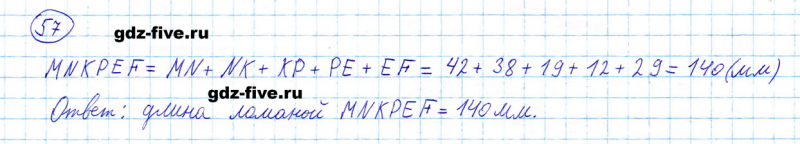 57
gdz-five.ru
MNKPEF = MN + NK + KP + PE + EF = 42 + 38 + 19 + 12 + 29 = 140 (мм)
gdz-five.ru
Ответ: длина ломаной MNKPEF = 140 мм.